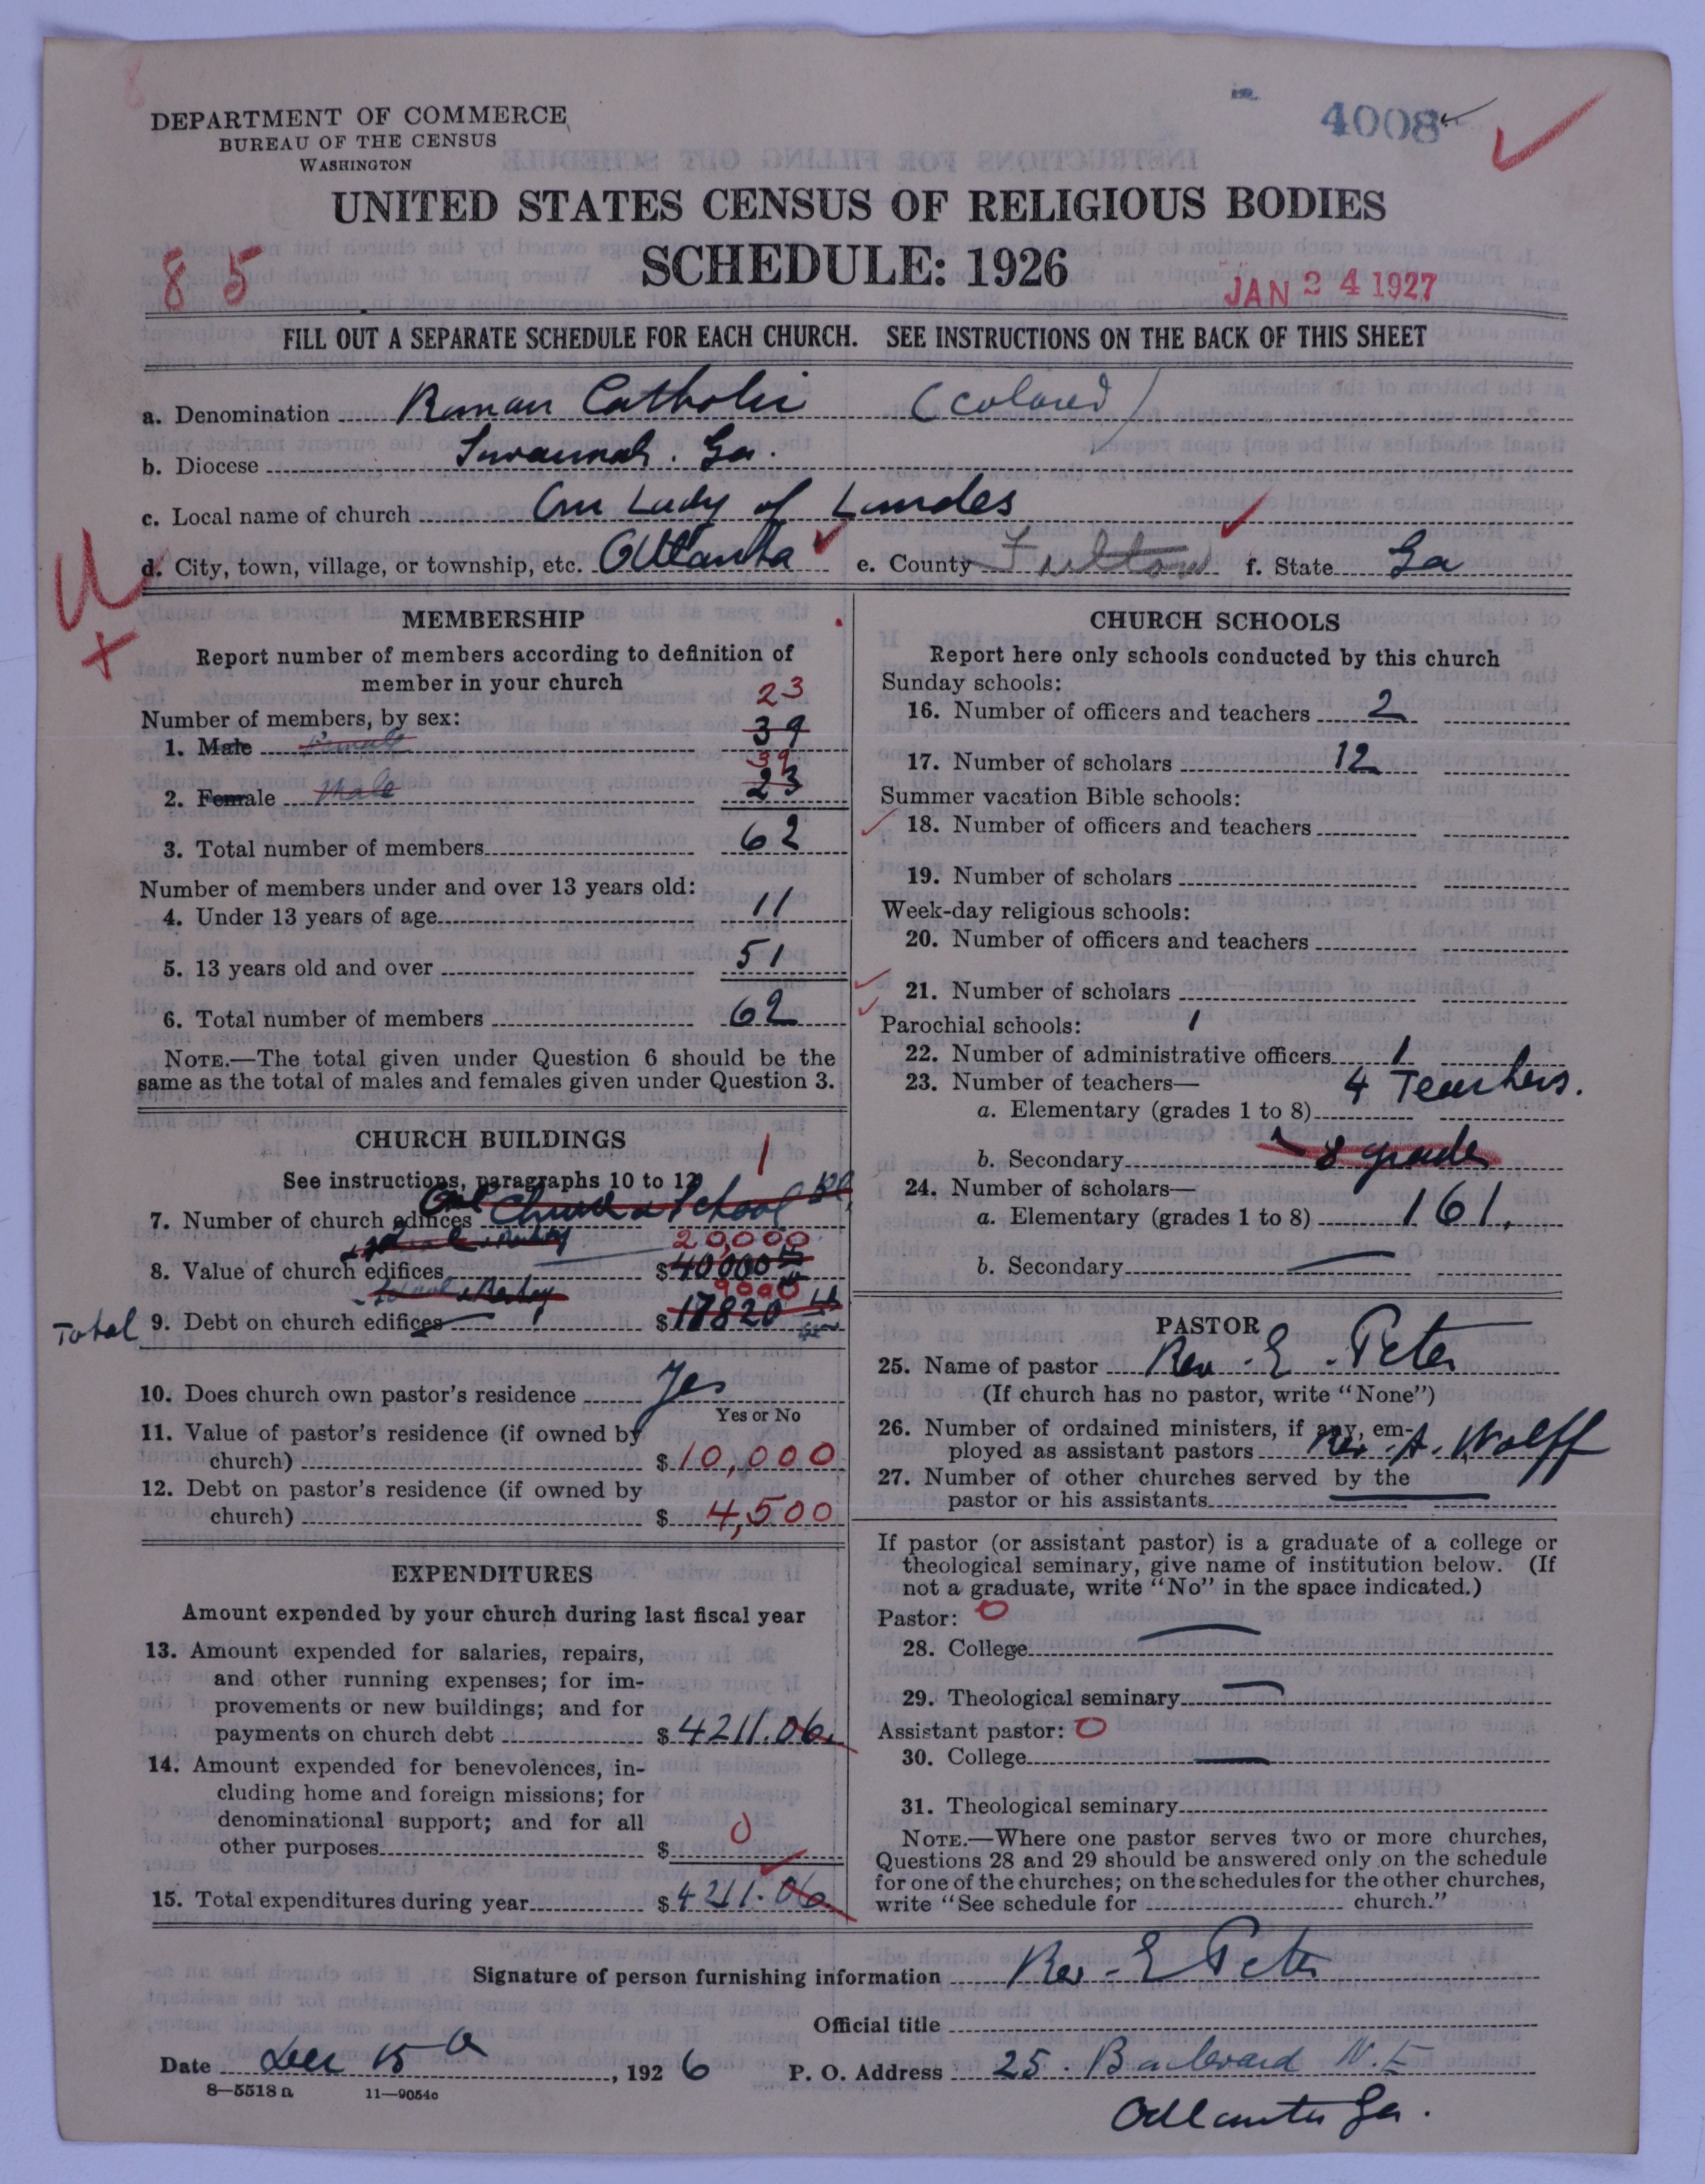 DEPARTMENT OF COMMERCE
BUREAU OF THE CENSUS
WASHINGTON
4008
UNITED STATES CENSUS OF RELIGIOUS BODIES
SCHEDULE: 1926
8 5
JAN 24 1927
FILL OUT A SEPARATE SCHEDULE FOR EACH CHURCH. SEE INSTRUCTIONS ON THE BACK OF THIS SHEET
a. Denomination Roman Catholic (Colored)
b. Diocese Savannah. Ga.
c. Local name of church Our Lady of Lourdes
d. City, town, village, or township, etc. Atlanta e. County Fulton f. State Ga
MEMBERSHIP
Report number of members according to definition of
member in your church
23
Number of members, by sex:
1. Male Female 39
39
2. Female Male 23
3. Total number of members 62
Number of members under and over 13 years old:
4. Under 13 years of age 11
5. 13 years old and over 51
6. Total number of members 62
NOTE.—The total given under Question 6 should be the
same as the total of males and females given under Question 3.
CHURCH BUILDINGS
1
See instructions, paragraphs 10 to 12
7. Number of church edifices One Church & School
20,000
8. Value of church edifices $40000
9000
Total 9. Debt on church edifices $17820
10. Does church own pastor's residence Yes
Yes or No
11. Value of pastor's residence (if owned by
church) $10,000
12. Debt on pastor's residence (if owned by
church) $4,500
EXPENDITURES
Amount expended by your church during last fiscal year
13. Amount expended for salaries, repairs,
and other running expenses; for im-
provements or new buildings; and for
payments on church debt $4211.06
14. Amount expended for benevolences, in-
cluding home and foreign missions; for
denominational support; and for all
other purposes $ 0
15. Total expenditures during year $4211.06
CHURCH SCHOOLS
Report here only schools conducted by this church
Sunday schools:
16. Number of officers and teachers 2
17. Number of scholars 12
Summer vacation Bible schools:
18. Number of officers and teachers
19. Number of scholars
Week-day religious schools:
20. Number of officers and teachers
21. Number of scholars
Parochial schools: 1
22. Number of administrative officers 1
23. Number of teachers— 4 Teachers.
a. Elementary (grades 1 to 8)
b. Secondary 8 grade
24. Number of scholars—
a. Elementary (grades 1 to 8) 161.
b. Secondary —
PASTOR
25. Name of pastor Rev. E. Peter
(If church has no pastor, write "None")
26. Number of ordained ministers, if any, em-
ployed as assistant pastors Rev. A. Wolff
27. Number of other churches served by the
pastor or his assistants —
If pastor (or assistant pastor) is a graduate of a college or
theological seminary, give name of institution below. (If
not a graduate, write "No" in the space indicated.)
Pastor: 0
28. College —
29. Theological seminary —
Assistant pastor: 0
30. College —
31. Theological seminary
NOTE.—Where one pastor serves two or more churches,
Questions 28 and 29 should be answered only on the schedule
for one of the churches; on the schedules for the other churches,
write "See schedule for church."
Signature of person furnishing information Rev. E Peter
Official title
Date Dec 15, 1926 P. O. Address 25. Boulevard N.E
8—5518 a 11—9054c
Atlanta Ga.